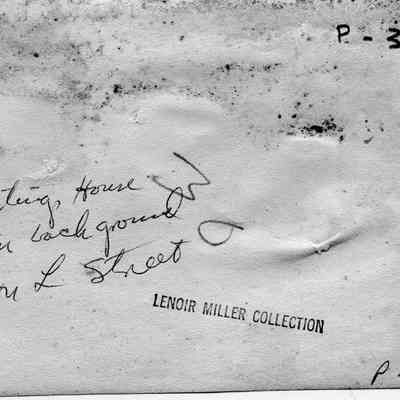 P - 3
House
in background
on L Street
LENOIR MILLER COLLECTION
P -